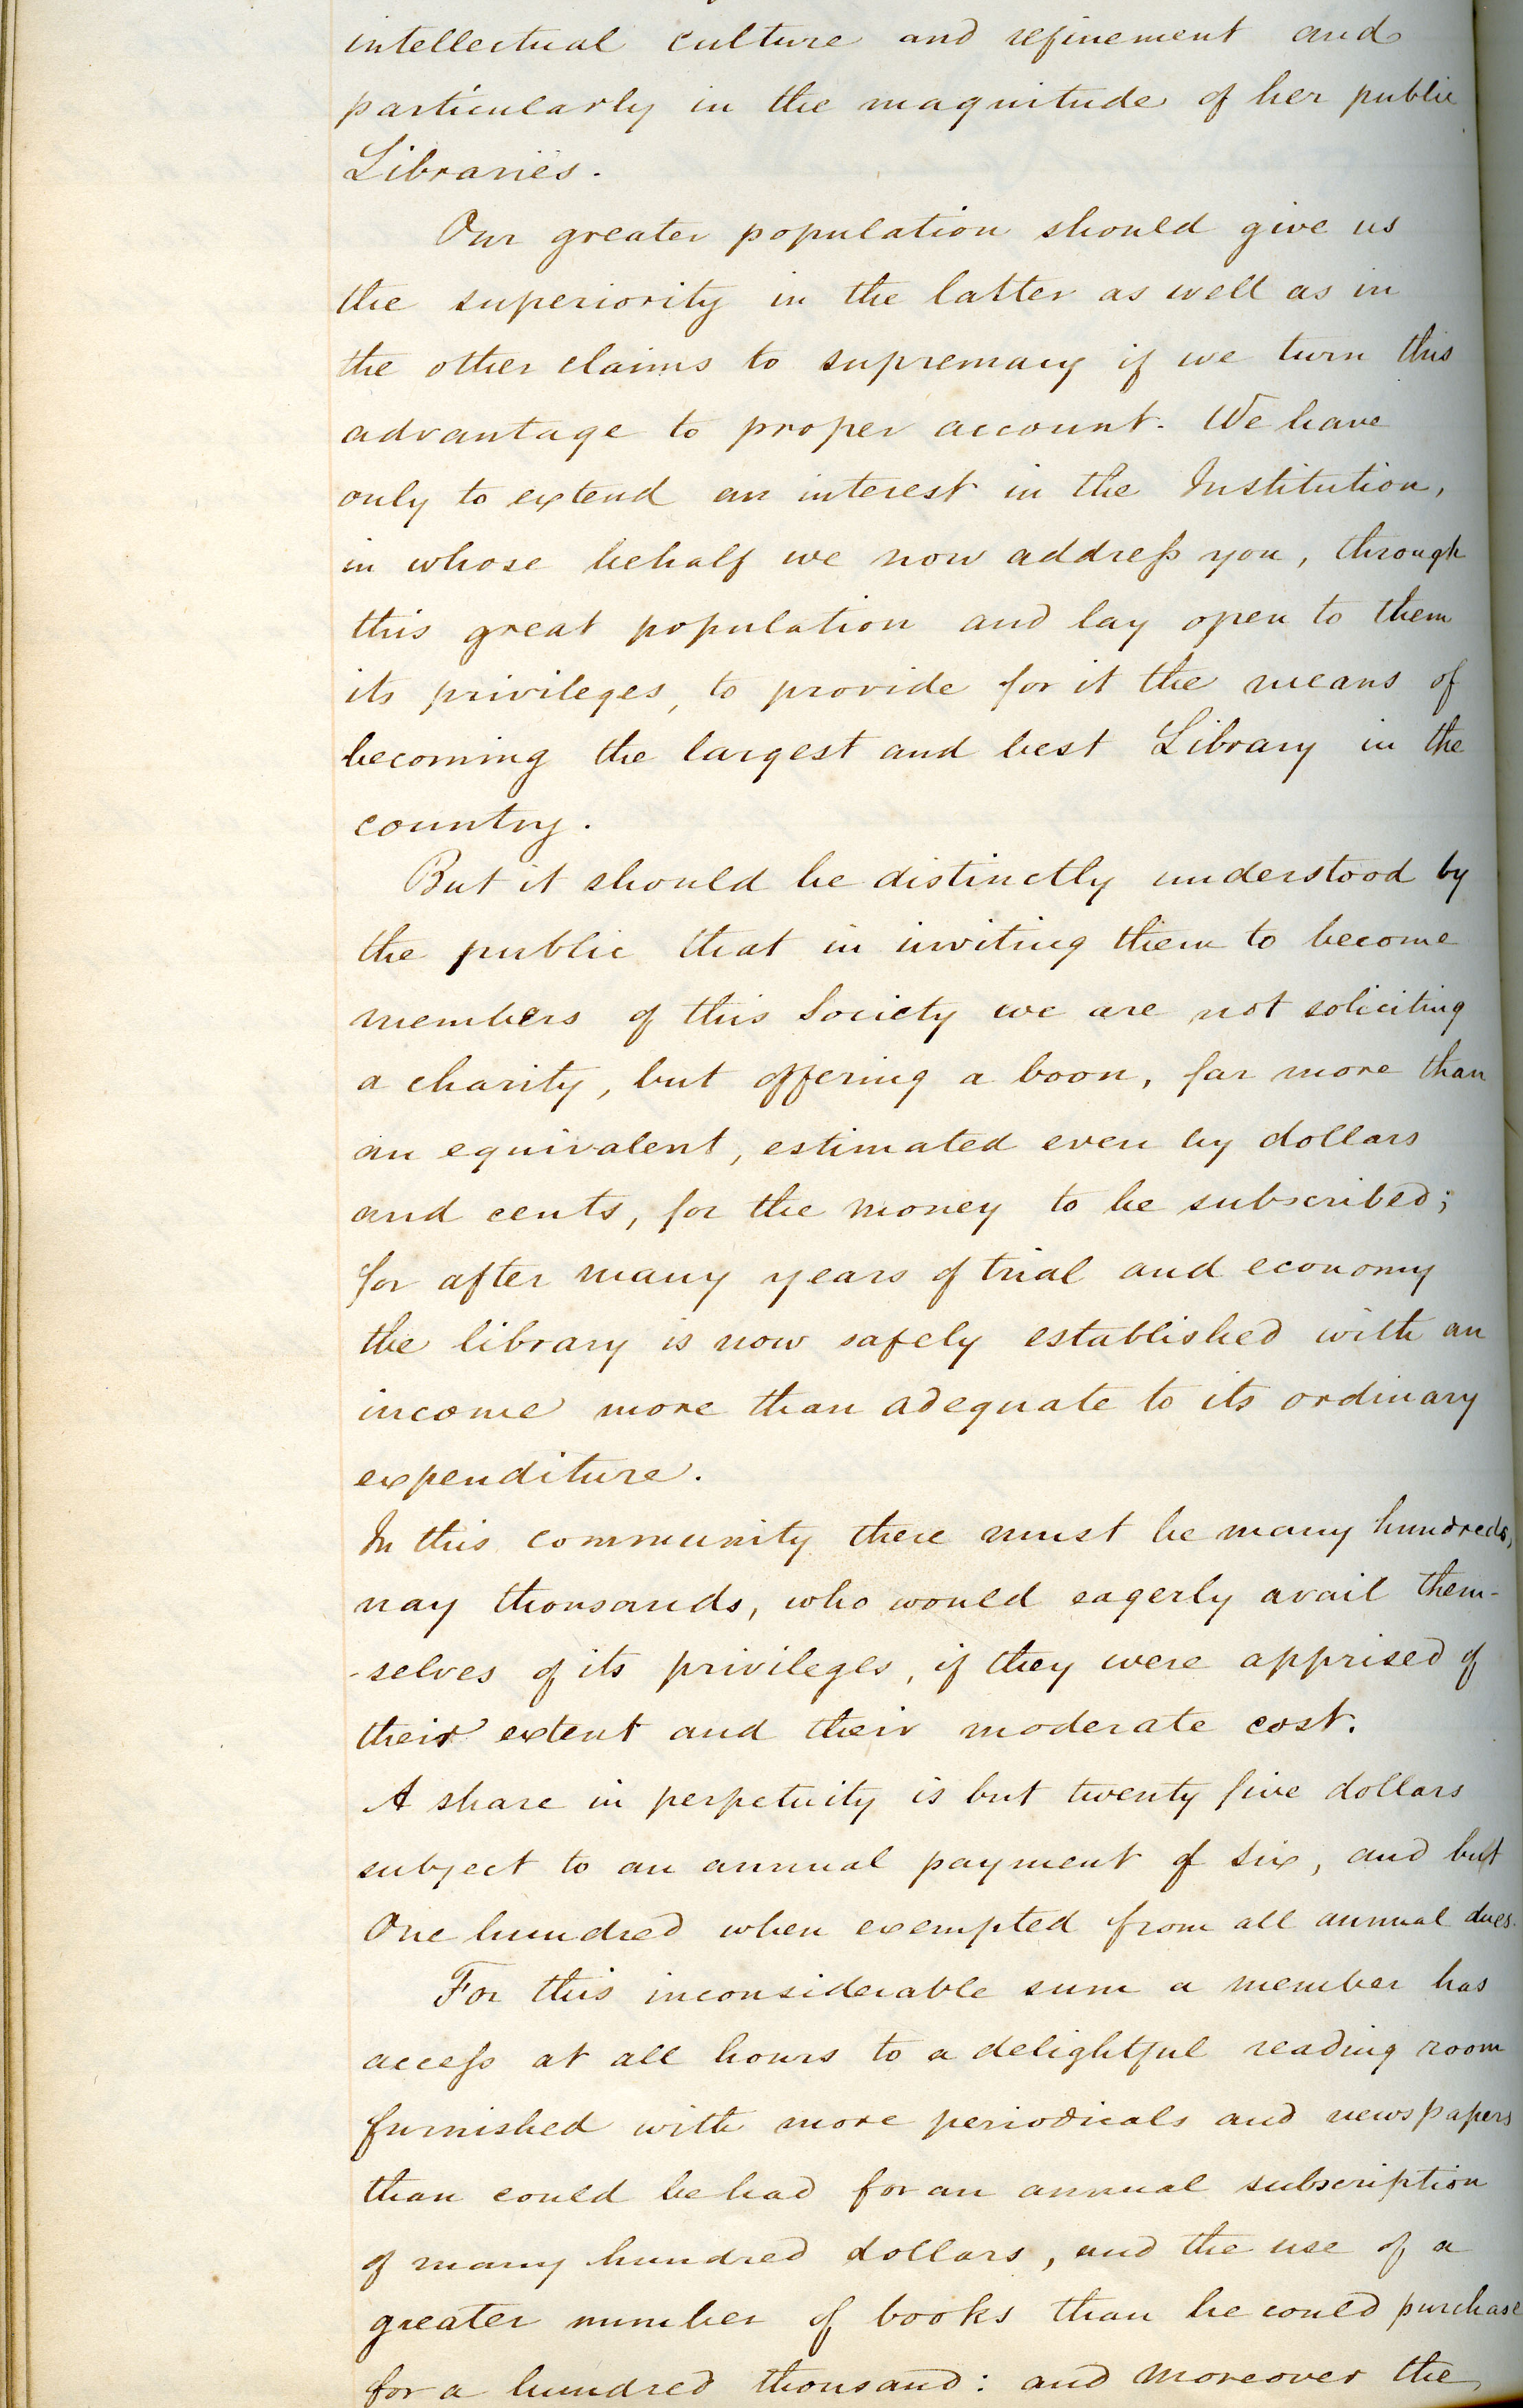 intellectual culture and refinement and
particularly in the magnitude of her public
Libraries.
Our greater population should give us
the superiority in the latter as well as in
the other claims to supremacy if we turn this
advantage to proper account. We have
only to extend an interest in the Institution,
in whose behalf we now address you, through
this great population and lay open to them
its privileges, to provide for it the means of
becoming the largest and best Library in the
country.
But it should be distinctly understood by
the public that in inviting them to become
members of this Society we are not soliciting
a charity, but offering a boon, far more than
an equivalent, estimated even by dollars
and cents, for the money to be subscribed;
for after many years of trial and economy
the library is now safely established with an
income more than adequate to its ordinary
expenditure.
In this community there must be many hundreds,
nay thousands, who would eagerly avail them-
-selves of its privileges, if they were apprised of
their extent and their moderate cost.
A share in perpetuity is but twenty five dollars
subject to an annual payment of six, and but
One hundred when exempted from all annual dues.
For this inconsiderable sum a member has
access at all hours to a delightful reading room
furnished with more periodicals and newspapers
than could be had for an annual subscription
of many hundred dollars, and the use of a
greater number of books than he could purchase
for a hundred thousand: and moreover the